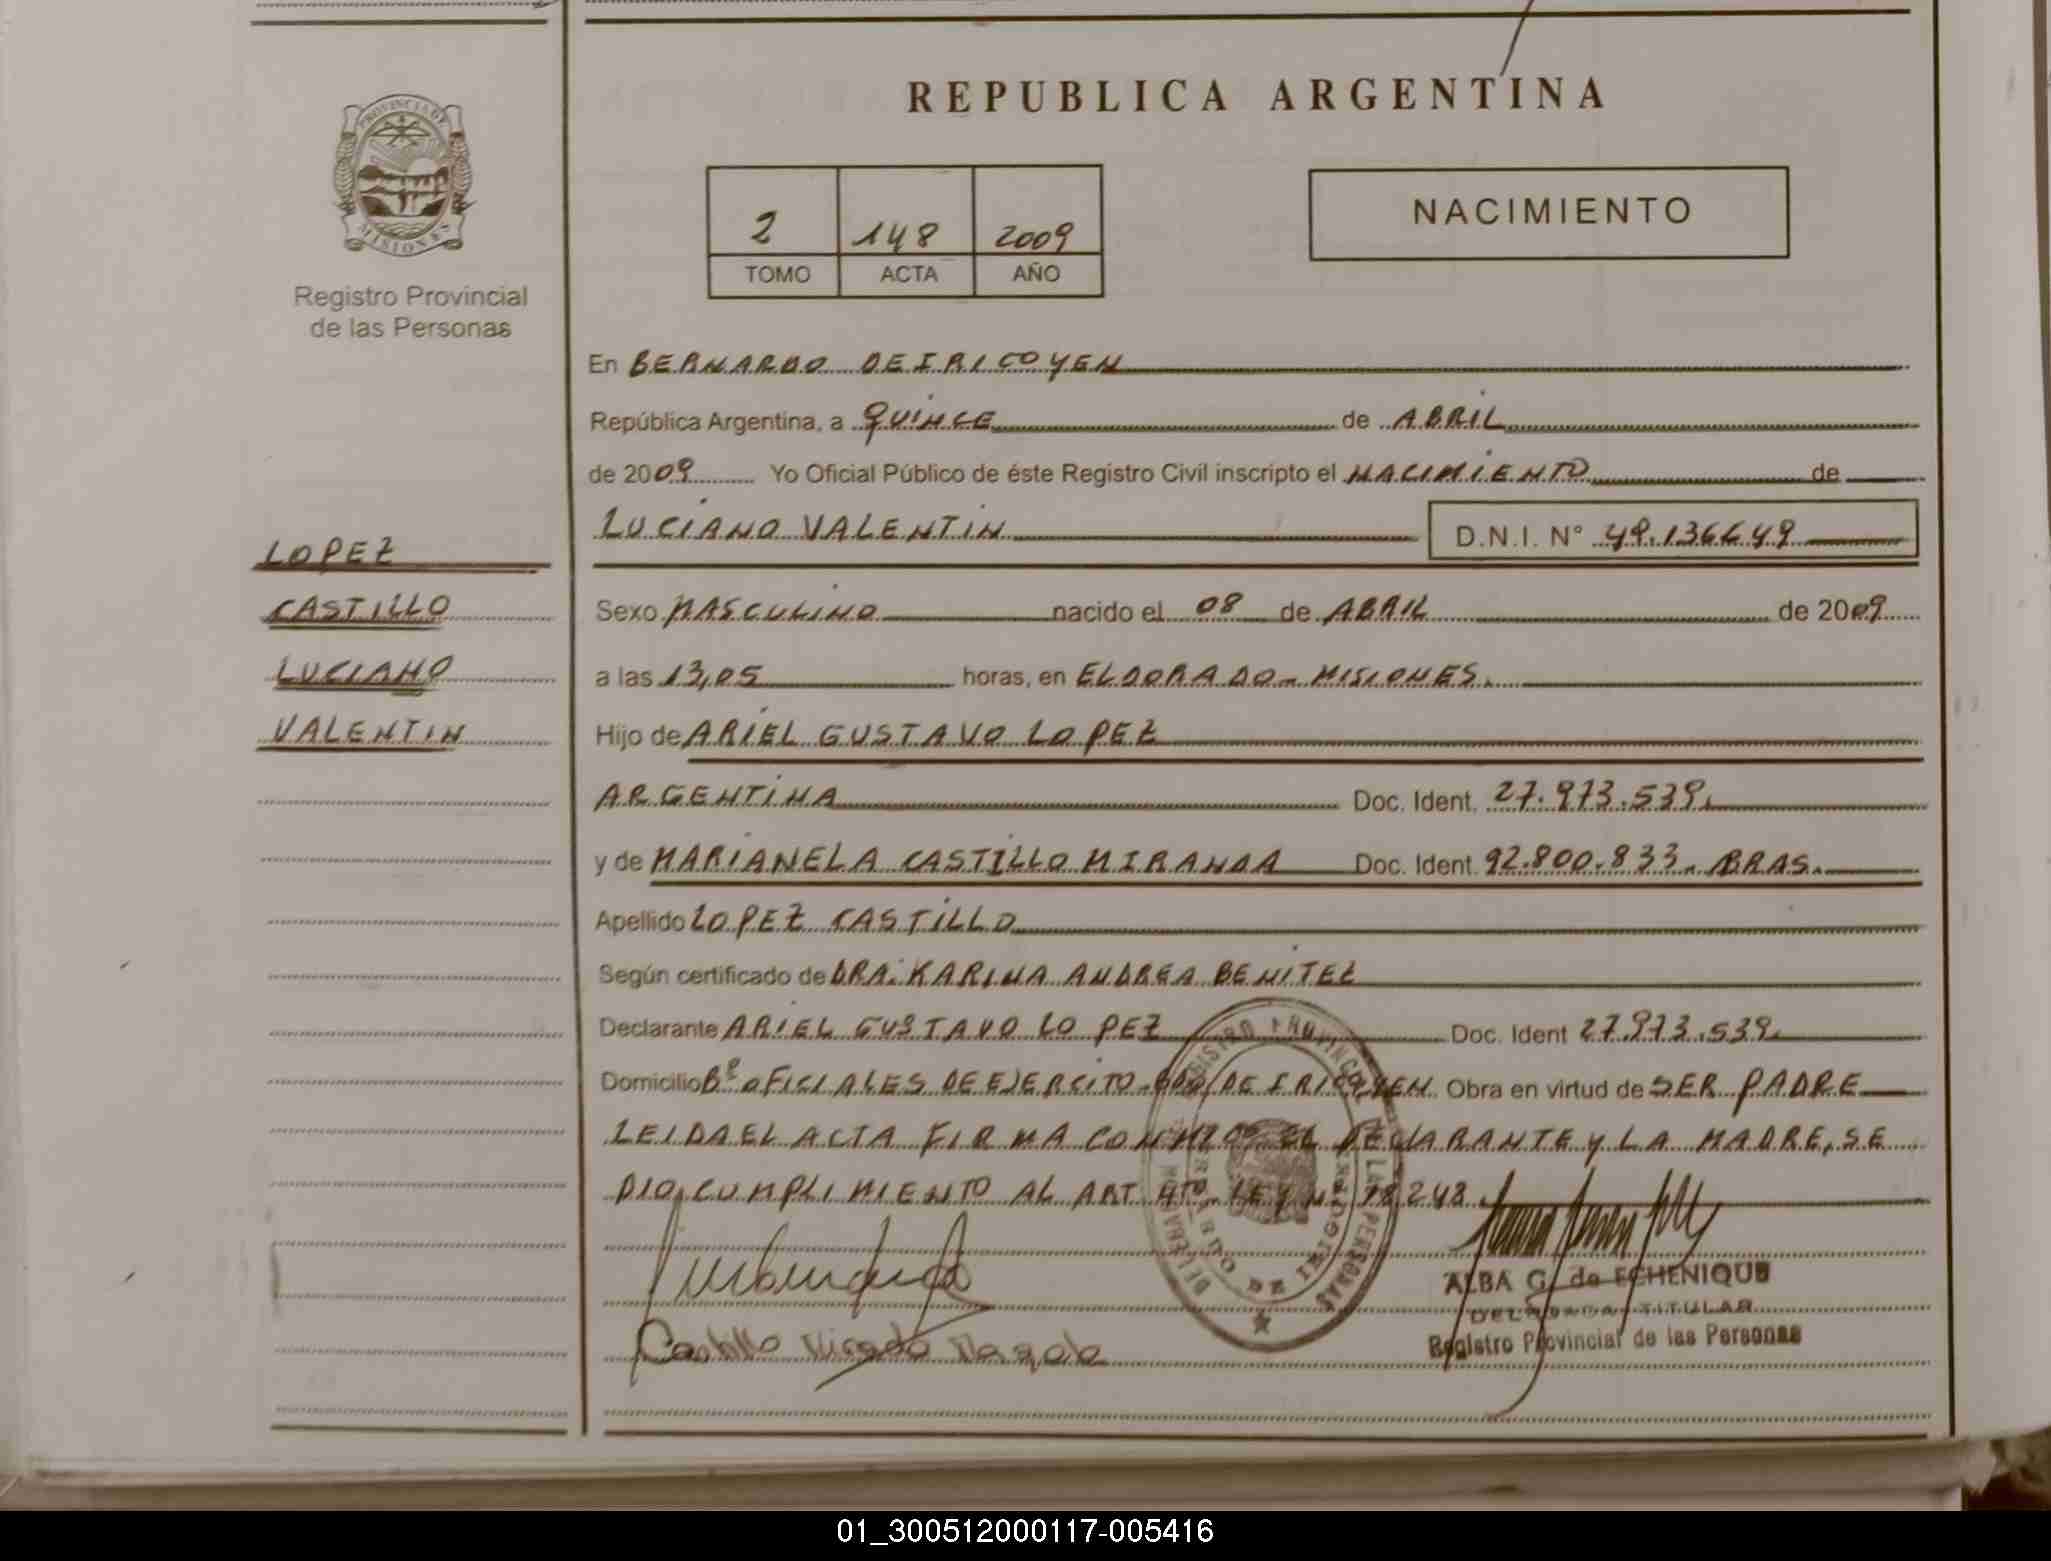 REPUBLICA ARGENTINA
PROVINCIA DE
MISIONES
Registro Provincial
de las Personas
2 148 2009
TOMO ACTA AÑO
NACIMIENTO
En BERNARDO DE IRIGOYEN
República Argentina, a QUINCE de ABRIL
de 2009 Yo Oficial Público de éste Registro Civil inscripto el NACIMIENTO de
LUCIANO VALENTIN D.N.I. N° 49.136649
LOPEZ
CASTILLO
LUCIANO
VALENTIN
Sexo MASCULINO nacido el 08 de ABRIL de 2009
a las 13,05 horas, en ELDORADO - MISIONES.
Hijo de ARIEL GUSTAVO LOPEZ
ARGENTINA Doc. Ident. 27.973.539.
y de MARIANELA CASTILLO MIRANDA Doc. Ident. 92.800.833. BRAS.
Apellido LOPEZ CASTILLO
Según certificado de DRA. KARINA ANDREA BENITEZ
Declarante ARIEL GUSTAVO LOPEZ Doc. Ident 27.973.539.
Domicilio Bº OFICIALES DE EJERCITO - BDO DE IRIGOYEN. Obra en virtud de SER PADRE
LEIDA EL ACTA FIRMA CONMIGO EL DECLARANTE Y LA MADRE, SE
DIO CUMPLIMIENTO AL ART. LEY Nº 18.248.
REGISTRO PROVINCIAL DE LAS PERSONAS
ALBA G. de ECHENIQUE
DELEGADA TITULAR
Registro Provincial de las Personas
Castillo
01_300512000117-005416